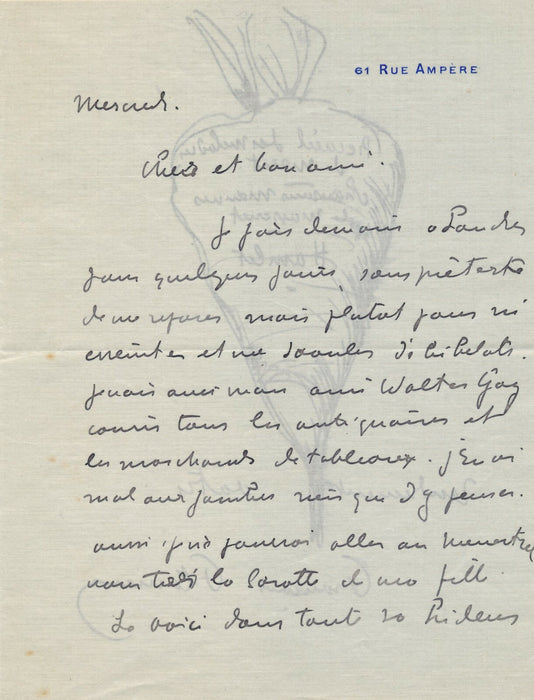 61 RUE AMPÈRE
Mercredi.
Cher et bon ami.
Je pars demain à Londres
pour quelques jours, sous prétexte
de me reposer mais plutôt pour m'
éreinter et me saouler de bibelots.
Je vais avec mon ami Walter Gay
courir tous les antiquaires et
les marchands de tableaux. J'en ai
mal aux jambes rien que d'y penser.
aussi je ne pourrai aller au Menestrel
la Carotte de ma fille
La voici dans toute sa hideur
Hamlet